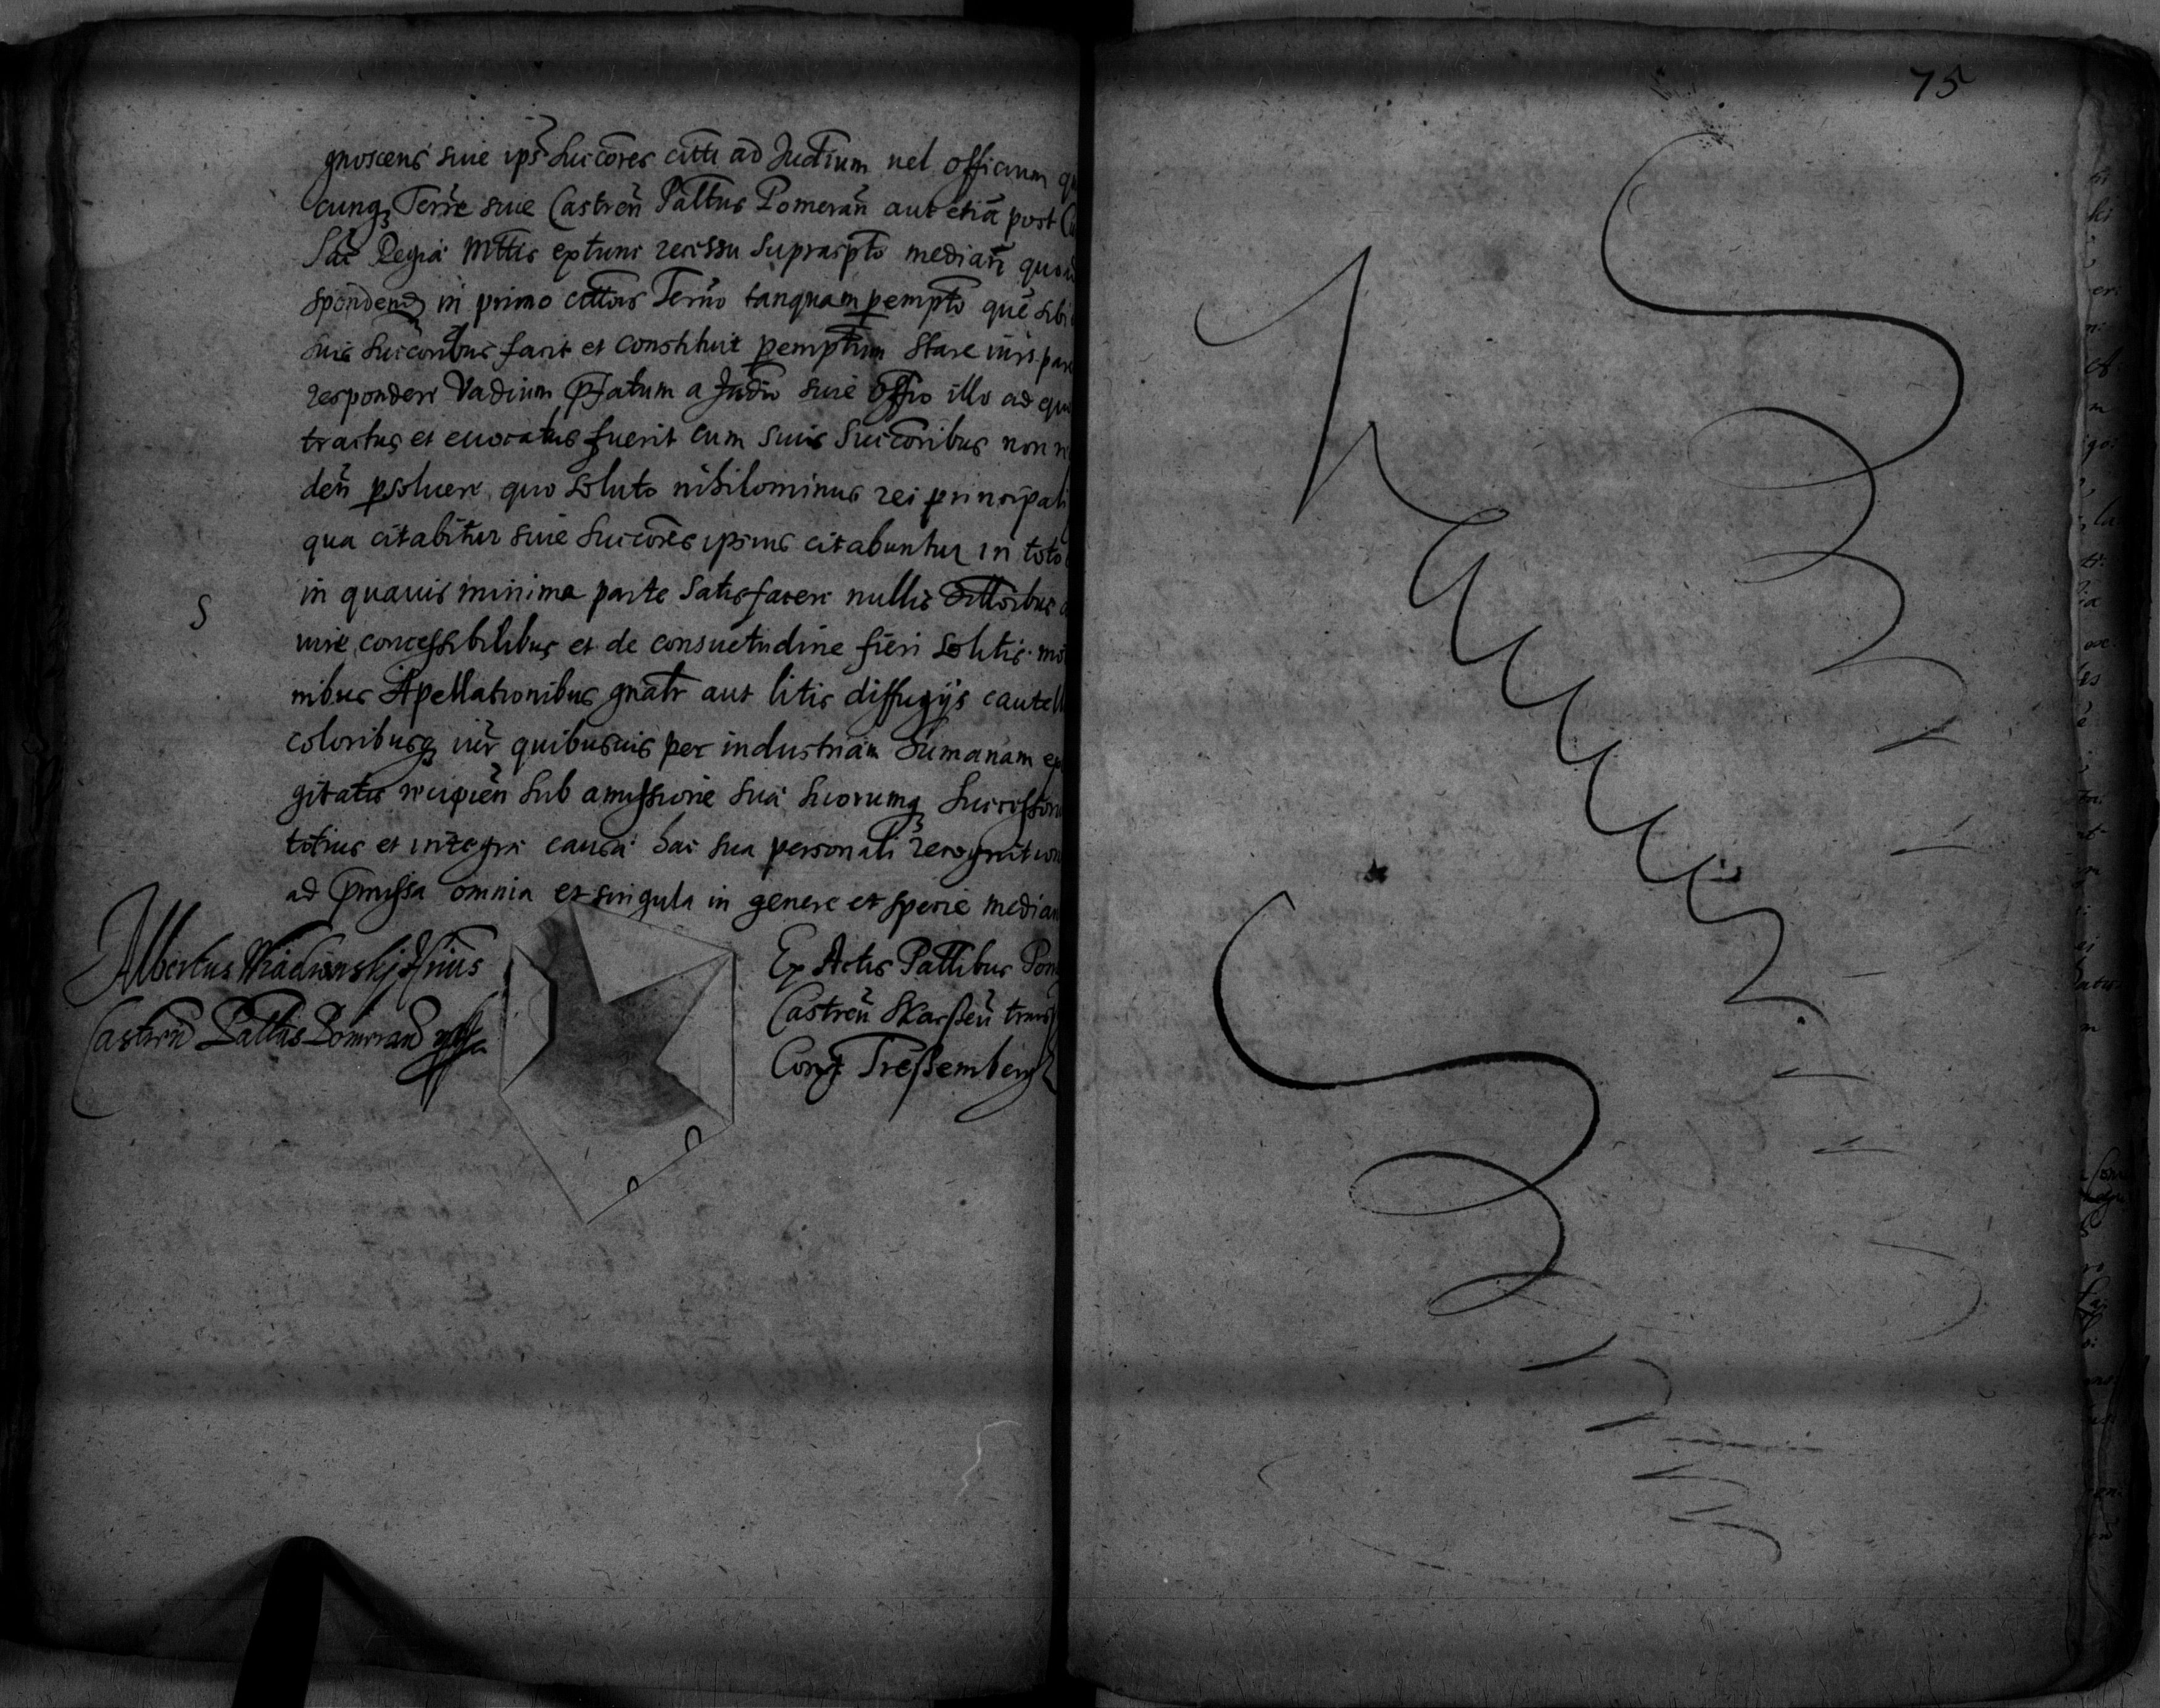 gnoscens siue ips Succores citti ad Judium uel officium
cunq Terre siue Castren Pallus Pomeran aut etiã post
Sac Regia Mttis extunc recessu supraspto median
spondend in primo cittois Terño tanquam pempto quẽ sibi
suis Succoribus facit et constituit pemptum stare iuris
respondere Vadium pfatum a Judio siue offio illo ad
tractus et euocatus fuerit cum suis Succoribus non
deñ psoluere quo soluto nihilominus rei principali
qua citabitur siue Succores ipsius citabuntur in toto
in quauis minima parte satisfacere nullis dillõibus
S
iure concessibilibus et de consuetudine fieri solitis
nibus Apellationibus gnalr aut litis diffugijs
coloribusq iur quibusuis per industriam humanam
gitatis recipien sub amissione sua suorumq Successorum
totius et integra causa hac sua personali recognitione
ad pmissa omnia et singula in genere et specie median
Albertus
Castren Pallus Pomeran
Ex Actis Pallibus
Castreñ Skarßeñ
75